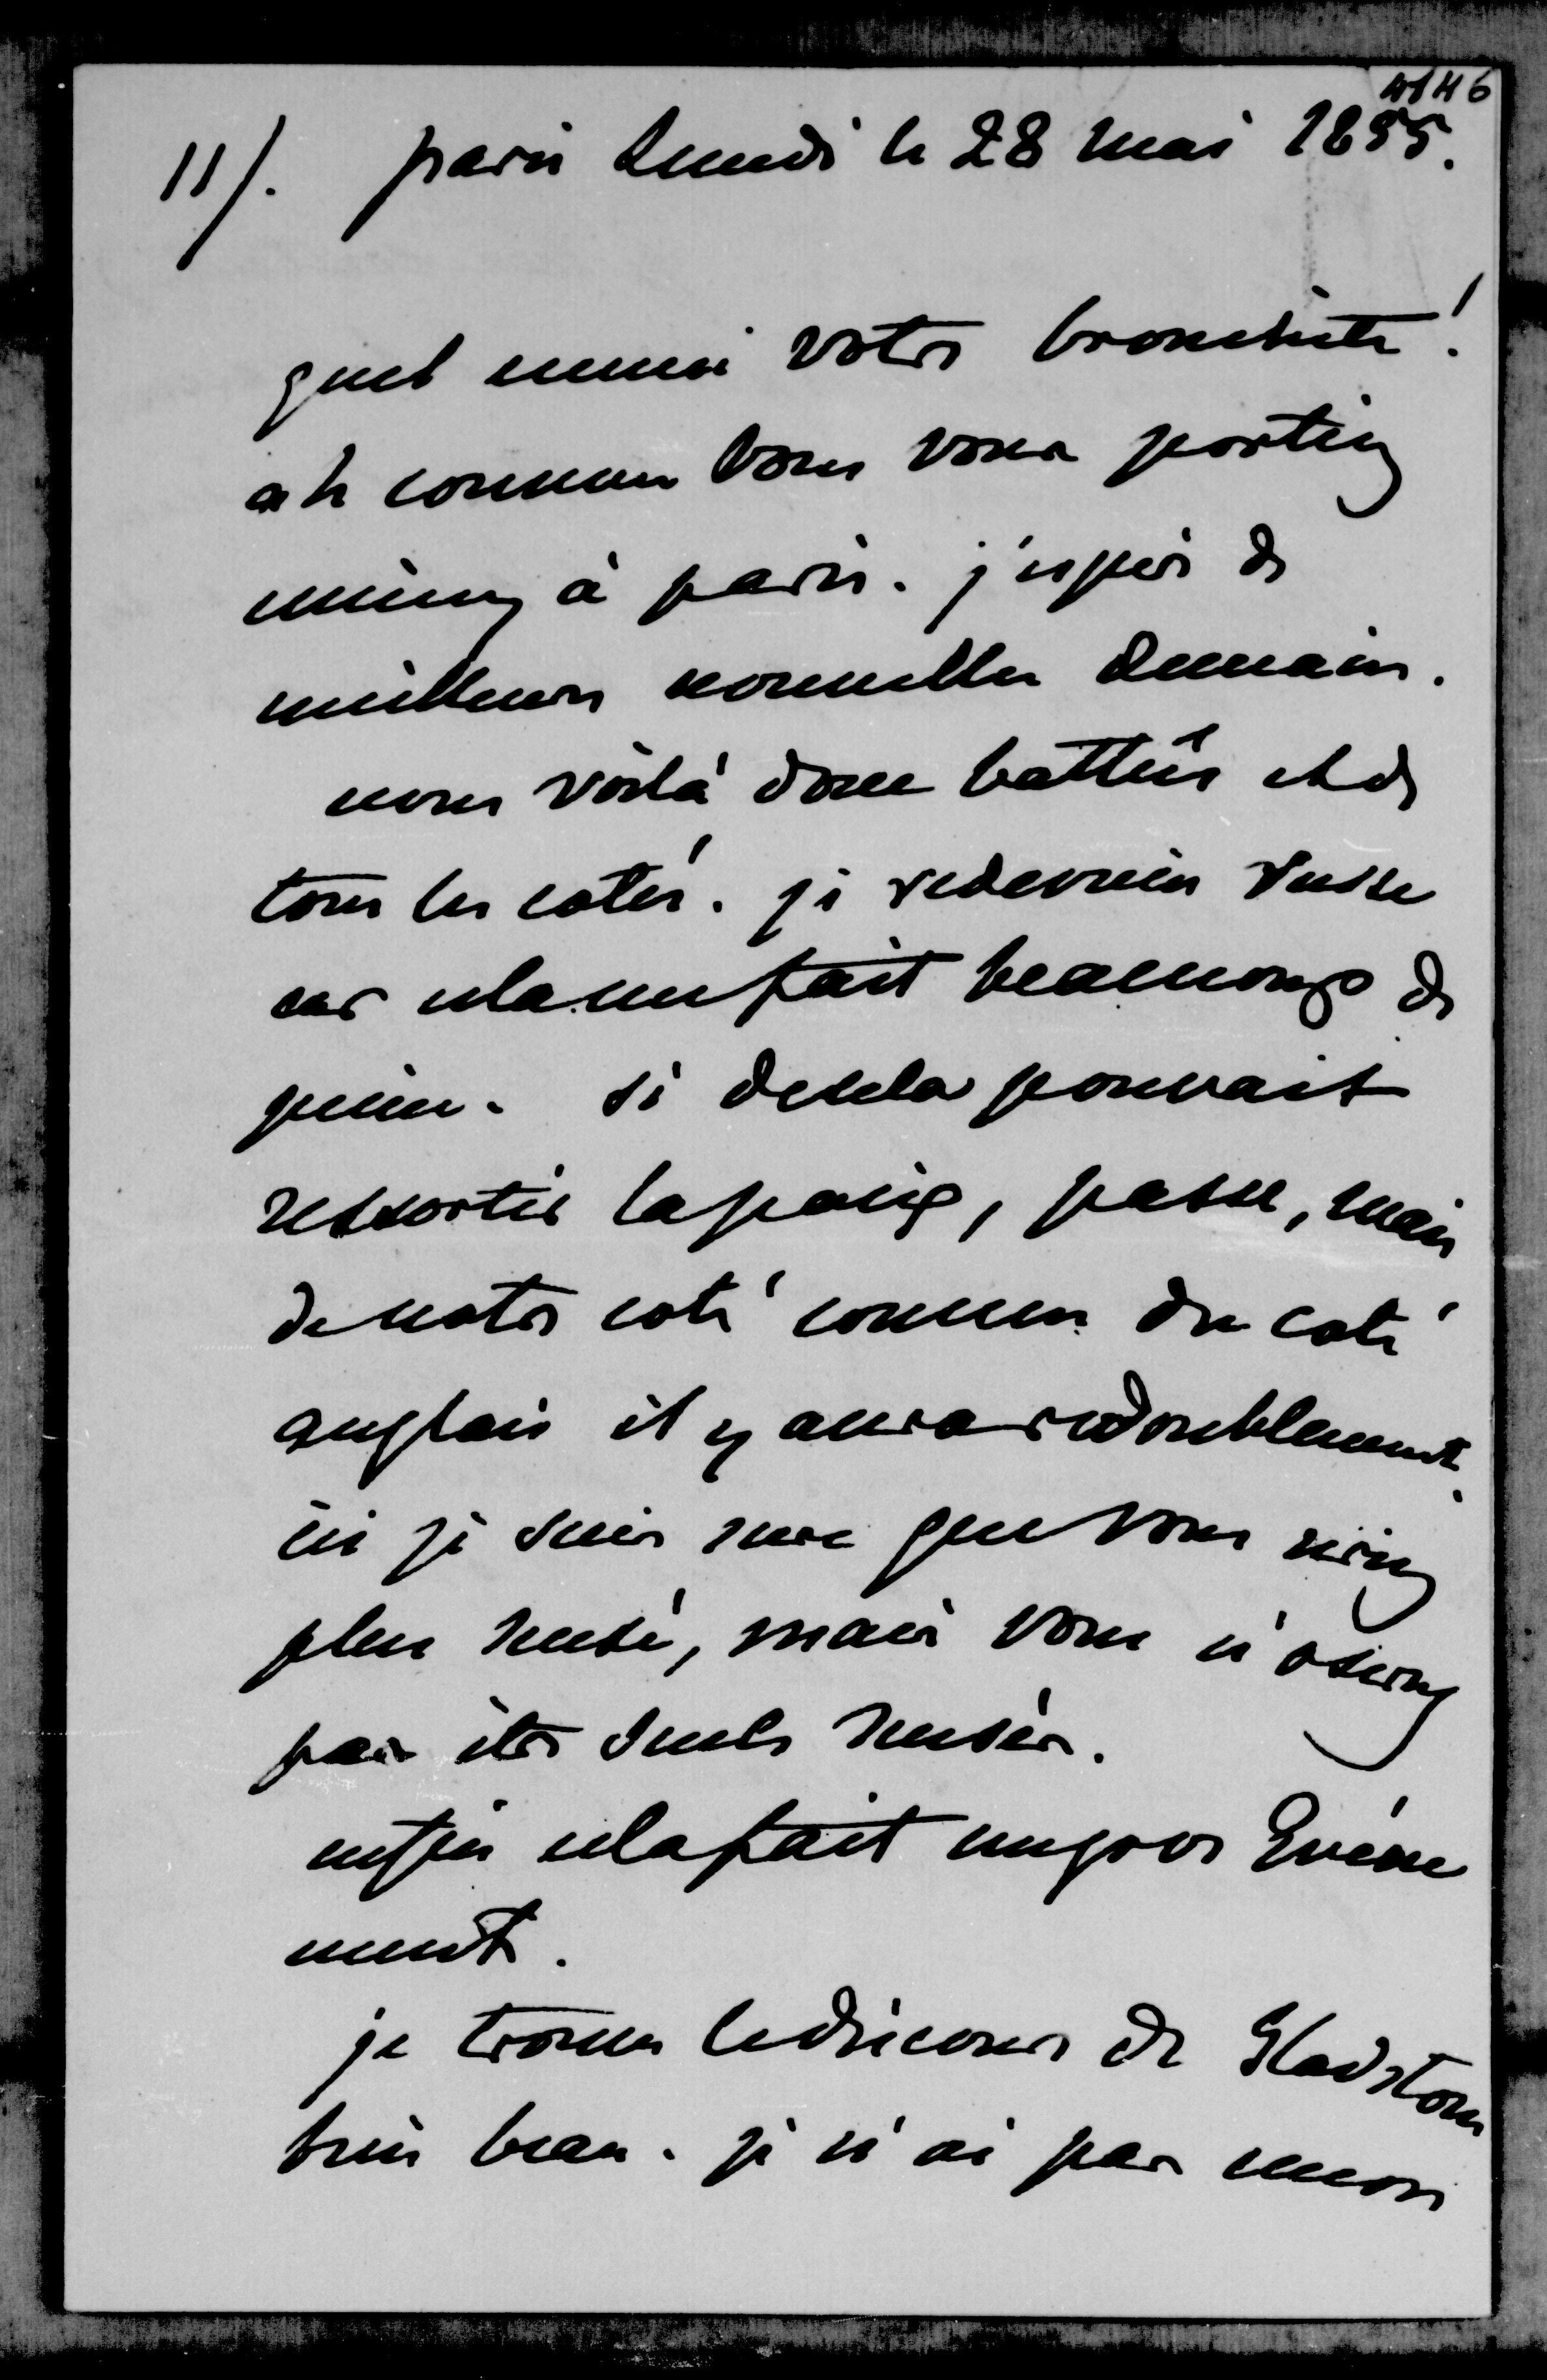 11/. paris Lundi le 28 mai 1855.
quel ennui votre bronchite!
ah comme vous vous portiez
mieux à paris. j'espère de
meilleures nouvelles demain.
nous voilà donc battus et de
tous les cotés. je redeviens Russe
car cela me fait beaucoup de
peine. si de cela pouvait
ressortir la paix, passe, mais
de notre coté comme du coté
anglais il y aura redoublement.
ici je suis sure que vous serez
plus rusé, mais vous n'oserez
pas être seuls rusés.
enfin cela fait un gros Evéne
ment.
je trouve le discours de Gladstone
bien beau. je n'ai pas encore